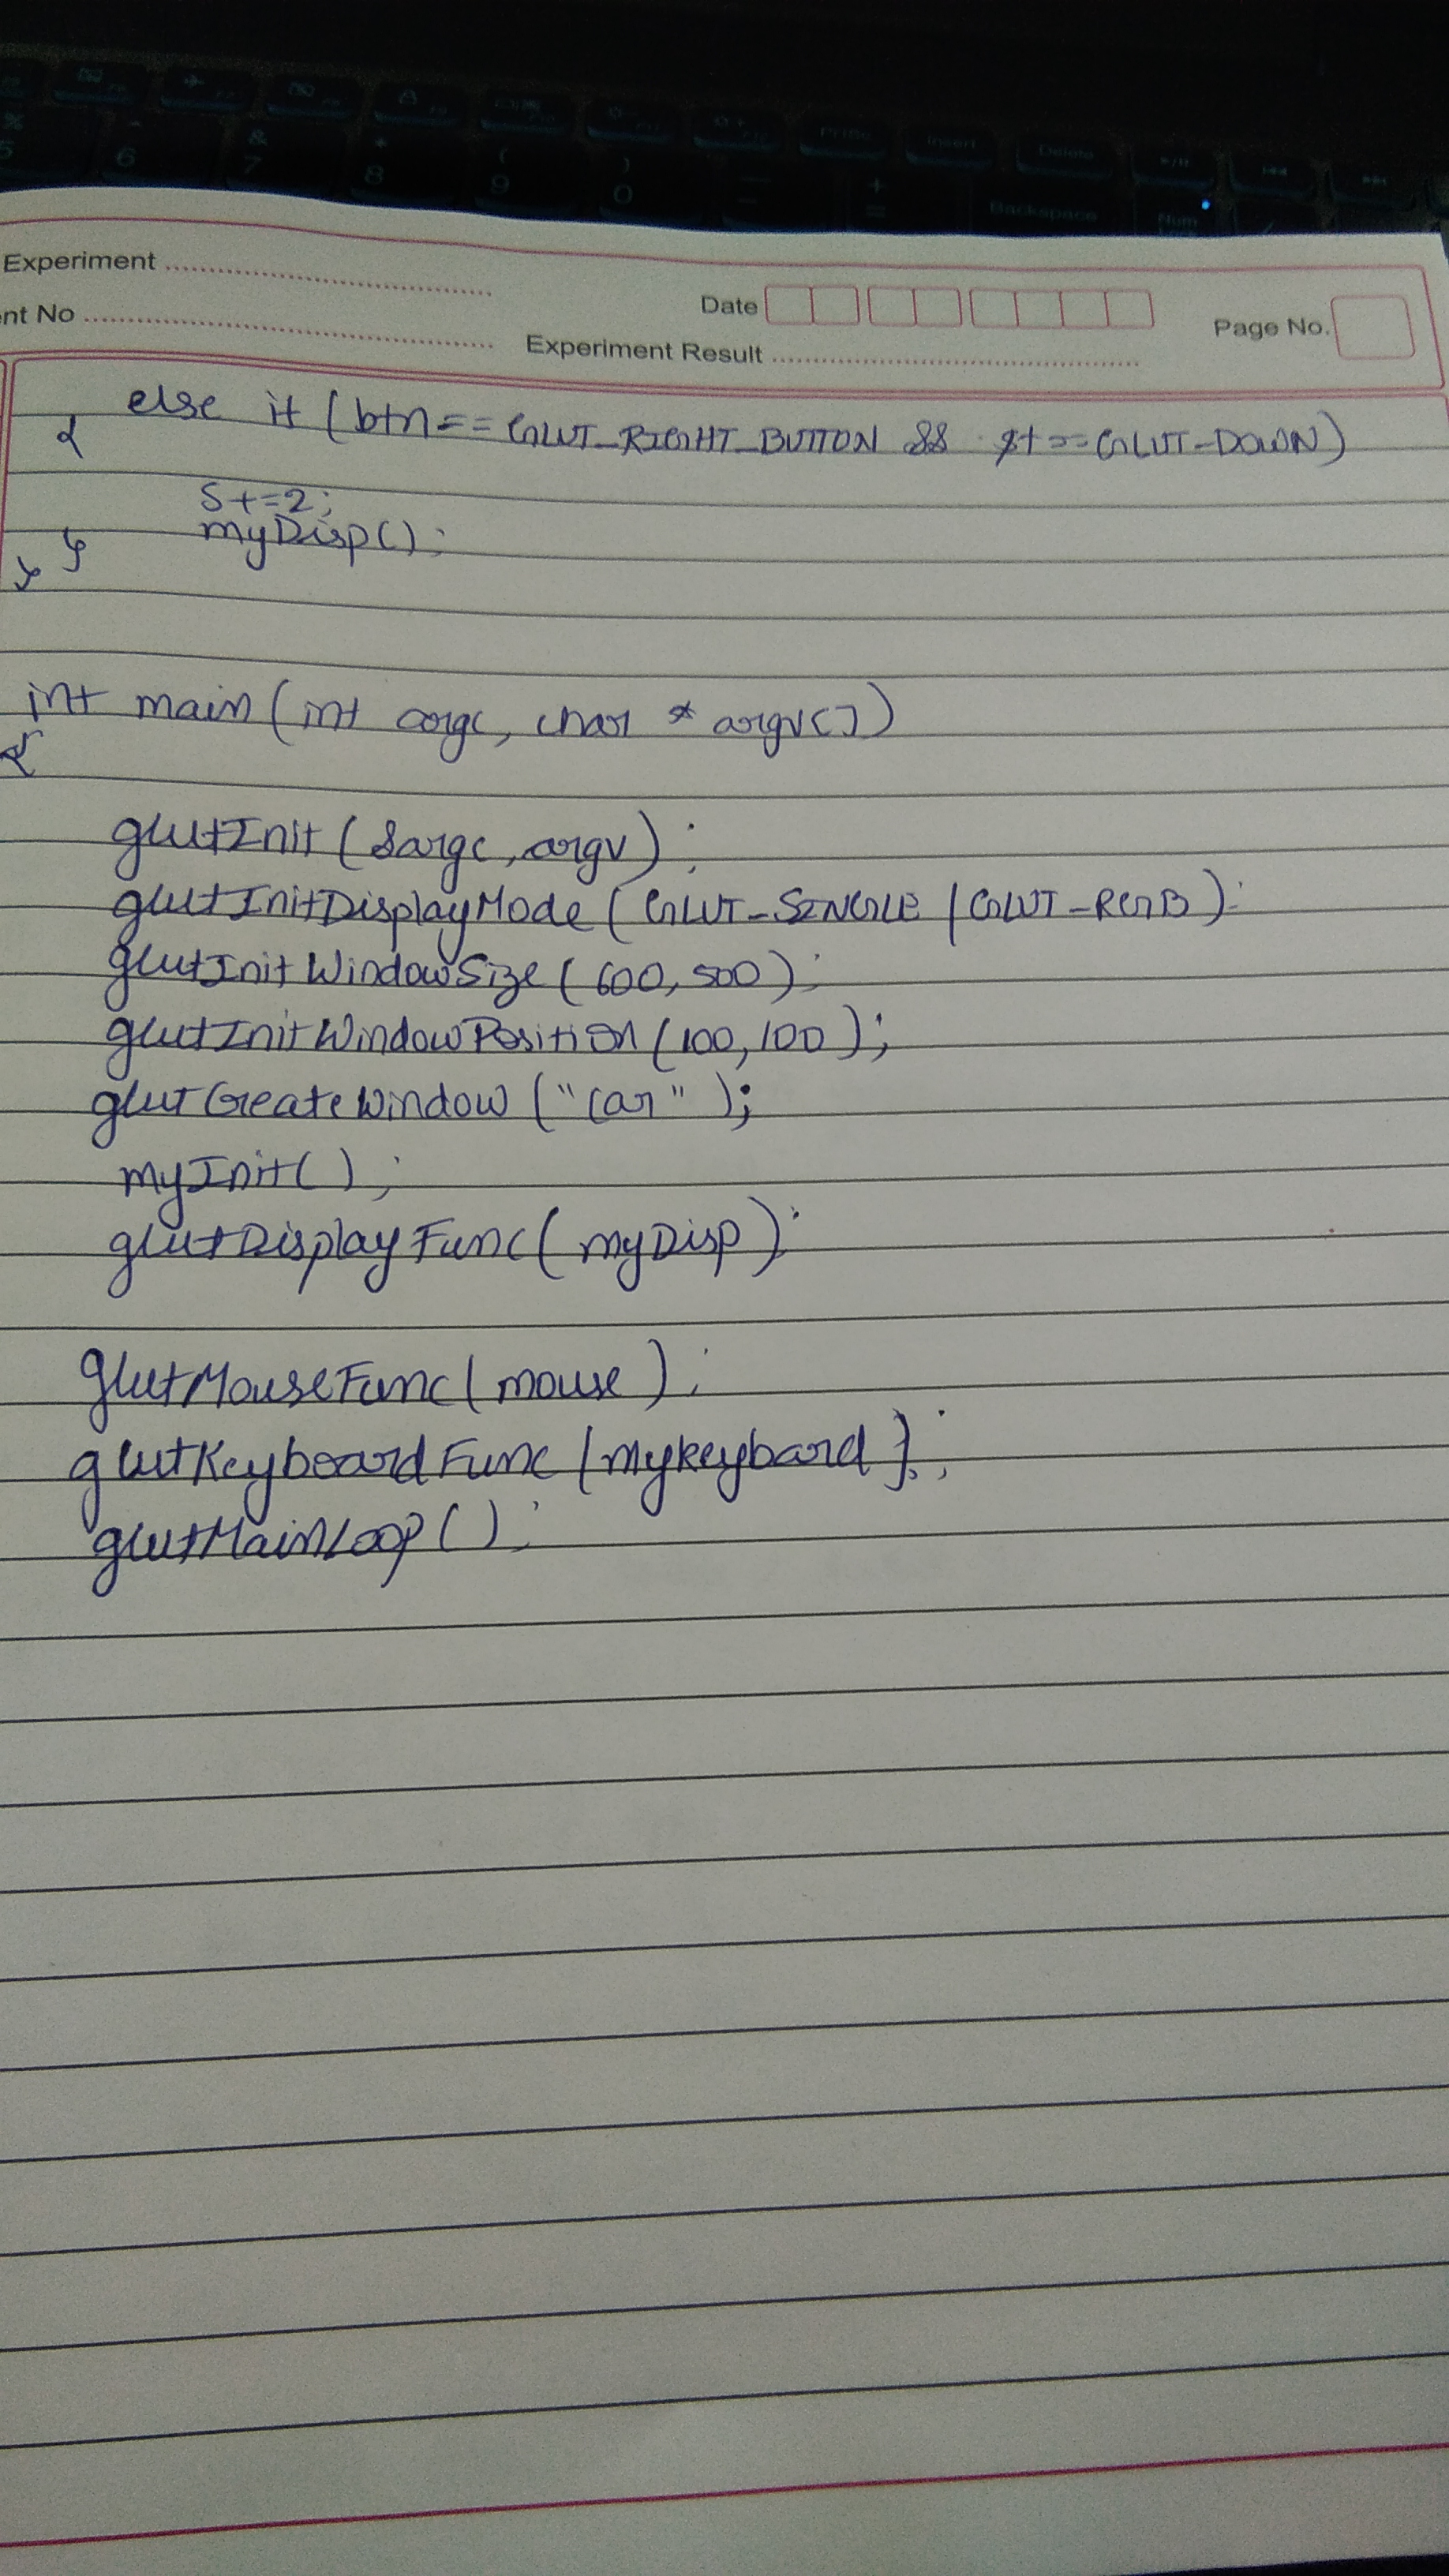 Experiment
nt No
Date
Experiment Result
Page No.
else if (btn==GLUT_RIGHT_BUTTON && st==GLUT_DOWN)
{
s+=2;
myDisp();
}
}
int main(int argc, char * argv[])
{
glutInit(&argc,argv);
glutInitDisplayMode(GLUT_SINGLE | GLUT_RGB);
glutInitWindowSize(600,500);
glutInitWindowPosition(100,100);
glutCreateWindow("car");
myInit();
glutDisplayFunc(myDisp);
glutMouseFunc(mouse);
glutKeyboardFunc(mykeybard);
glutMainLoop();